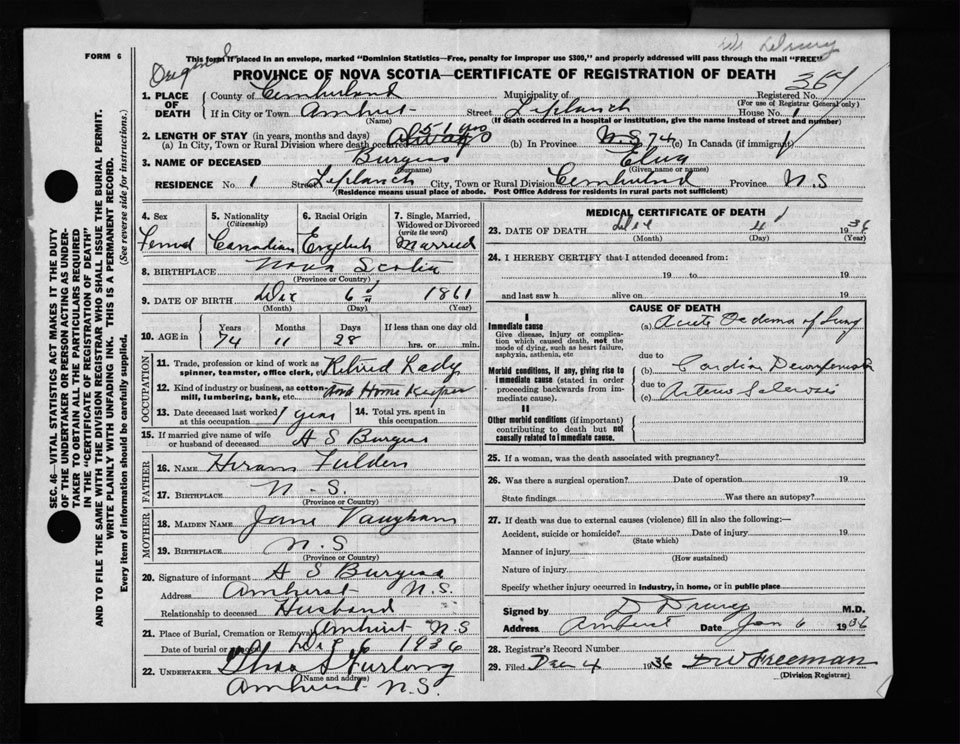 FORM 6
This form if placed in an envelope, marked "Dominion Statistics—Free, penalty for improper use $300," and properly addressed will pass through the mail "FREE"
Original
PROVINCE OF NOVA SCOTIA—CERTIFICATE OF REGISTRATION OF DEATH
1. PLACE OF DEATH
County of Cumberland Municipality of Registered No. 367
(For use of Registrar General only)
If in City or Town Amherst Street Laplanch House No. 1
(Name) (If death occurred in a hospital or institution, give the name instead of street and number)
2. LENGTH OF STAY (in years, months and days)
(a) In City, Town or Rural Division where death occurred 51 yrs (b) In Province N.S 74 (c) In Canada (if immigrant)
3. NAME OF DECEASED Burgess
(Surname) (Given name or names)
RESIDENCE No. 1 Street Leplanch City, Town or Rural Division Cumberland Province N.S
(Residence means usual place of abode. Post Office Address for residents in rural parts not sufficient)
4. Sex
5. Nationality
(Citizenship)
6. Racial Origin
7. Single, Married, Widowed or Divorced
(write the word)
Canadian English Married
8. BIRTHPLACE Nova Scotia
(Province or Country)
9. DATE OF BIRTH 6 1861
(Month) (Day) (Year)
10. AGE in Years Months Days If less than one day old
74 11 28 hrs. or min.
OCCUPATION
11. Trade, profession or kind of work as spinner, teamster, office clerk, etc. Retired Lady
12. Kind of industry or business, as cotton-mill, lumbering, bank, etc. and Home Keeper
13. Date deceased last worked at this occupation 1 year
14. Total yrs. spent in this occupation
15. If married give name of wife or husband of deceased A S Burgess
FATHER
16. NAME Hiram
17. BIRTHPLACE N.S.
(Province or Country)
MOTHER
18. MAIDEN NAME Jane Vaugham
19. BIRTHPLACE N.S
(Province or Country)
20. Signature of informant A S Burgess
Address Amherst N.S.
Relationship to deceased Husband
21. Place of Burial, Cremation or Removal Amherst N.S
Date of burial or 6 1936
22. UNDERTAKER Furlong
(Name and address)
Amherst N.S.
MEDICAL CERTIFICATE OF DEATH
23. DATE OF DEATH 4 1936
(Month) (Day) (Year)
24. I HEREBY CERTIFY that I attended deceased from:
19 to 19
and last saw h alive on 19
CAUSE OF DEATH
I
Immediate cause
Give disease, injury or complication which caused death, not the mode of dying, such as heart failure, asphyxia, asthenia, etc
(a) Acute Oedema of Lung
due to
Morbid conditions, if any, giving rise to immediate cause (stated in order proceeding backwards from immediate cause).
(b) Cardiac
due to
(c) Arterio Sclerosis
II
Other morbid conditions (if important) contributing to death but not causally related to immediate cause.
25. If a woman, was the death associated with pregnancy?
26. Was there a surgical operation? Date of operation 19
State findings Was there an autopsy?
27. If death was due to external causes (violence) fill in also the following:—
Accident, suicide or homicide? Date of injury 19
(State which)
Manner of injury
(How sustained)
Nature of injury
Specify whether injury occurred in industry, in home, or in public place
Signed by D Drury M.D.
Address Amherst Date Jan 6 1936
28. Registrar's Record Number
29. Filed Dec 4 1936 DW Freeman
(Division Registrar)
SEC. 46—VITAL STATISTICS ACT MAKES IT THE DUTY OF THE UNDERTAKER OR PERSON ACTING AS UNDERTAKER TO OBTAIN ALL THE PARTICULARS REQUIRED IN THE "CERTIFICATE OF REGISTRATION OF DEATH" AND TO FILE THE SAME WITH THE DIVISION REGISTRAR WHO SHALL ISSUE THE BURIAL PERMIT.
WRITE PLAINLY WITH UNFADING INK. THIS IS A PERMANENT RECORD.
Every item of information should be carefully supplied. (See reverse side for instructions.)